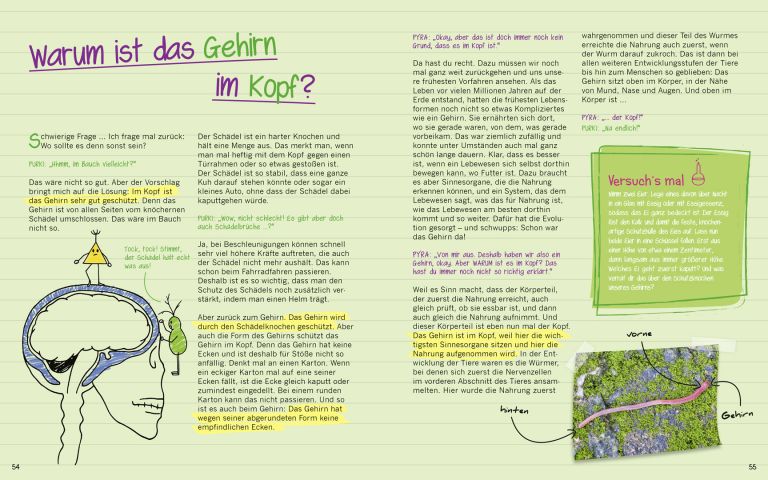 Warum ist das Gehirn
im Kopf?
Schwierige Frage ... Ich frage mal zurück:
Wo sollte es denn sonst sein?
PURKI: „Hmmm, im Bauch vielleicht?“
Das wäre nicht so gut. Aber der Vorschlag
bringt mich auf die Lösung: Im Kopf ist
das Gehirn sehr gut geschützt. Denn das
Gehirn ist von allen Seiten vom knöchernen
Schädel umschlossen. Das wäre im Bauch
nicht so.
Tock, tock! Stimmt,
der Schädel hält echt
was aus!
Der Schädel ist ein harter Knochen und
hält eine Menge aus. Das merkt man, wenn
man mal heftig mit dem Kopf gegen einen
Türrahmen oder so etwas gestoßen ist.
Der Schädel ist so stabil, dass eine ganze
Kuh darauf stehen könnte oder sogar ein
kleines Auto, ohne dass der Schädel dabei
kaputtgehen würde.
PURKI: „Wow, nicht schlecht! Es gibt aber doch
auch Schädelbrüche ...?“
Ja, bei Beschleunigungen können schnell
sehr viel höhere Kräfte auftreten, die auch
der Schädel nicht mehr aushält. Das kann
schon beim Fahrradfahren passieren.
Deshalb ist es so wichtig, dass man den
Schutz des Schädels noch zusätzlich ver-
stärkt, indem man einen Helm trägt.
Aber zurück zum Gehirn. Das Gehirn wird
durch den Schädelknochen geschützt. Aber
auch die Form des Gehirns schützt das
Gehirn im Kopf. Denn das Gehirn hat keine
Ecken und ist deshalb für Stöße nicht so
anfällig. Denkt mal an einen Karton. Wenn
ein eckiger Karton mal auf eine seiner
Ecken fällt, ist die Ecke gleich kaputt oder
zumindest eingedellt. Bei einem runden
Karton kann das nicht passieren. Und so
ist es auch beim Gehirn: Das Gehirn hat
wegen seiner abgerundeten Form keine
empfindlichen Ecken.
54
PYRA: „Okay, aber das ist doch immer noch kein
Grund, dass es im Kopf ist.“
Da hast du recht. Dazu müssen wir noch
mal ganz weit zurückgehen und uns unse-
re frühesten Vorfahren ansehen. Als das
Leben vor vielen Millionen Jahren auf der
Erde entstand, hatten die frühesten Lebens-
formen noch nicht so etwas Kompliziertes
wie ein Gehirn. Sie ernährten sich dort,
wo sie gerade waren, von dem, was gerade
vorbeikam. Das war ziemlich zufällig und
konnte unter Umständen auch mal ganz
schön lange dauern. Klar, dass es besser
ist, wenn ein Lebewesen sich selbst dorthin
bewegen kann, wo Futter ist. Dazu braucht
es aber Sinnesorgane, die die Nahrung
erkennen können, und ein System, das dem
Lebewesen sagt, was das für Nahrung ist,
wie das Lebewesen am besten dorthin
kommt und so weiter. Dafür hat die Evolu-
tion gesorgt – und schwupps: Schon war
das Gehirn da!
PYRA: „Von mir aus. Deshalb haben wir also ein
Gehirn, okay. Aber WARUM ist es im Kopf? Das
hast du immer noch nicht so richtig erklärt.“
Weil es Sinn macht, dass der Körperteil,
der zuerst die Nahrung erreicht, auch
gleich prüft, ob sie essbar ist, und dann
auch gleich die Nahrung aufnimmt. Und
dieser Körperteil ist eben nun mal der Kopf.
Das Gehirn ist im Kopf, weil hier die wich-
tigsten Sinnesorgane sitzen und hier die
Nahrung aufgenommen wird. In der Ent-
wicklung der Tiere waren es die Würmer,
bei denen sich zuerst die Nervenzellen
im vorderen Abschnitt des Tieres ansam-
melten. Hier wurde die Nahrung zuerst
wahrgenommen und dieser Teil des Wurmes
erreichte die Nahrung auch zuerst, wenn
der Wurm darauf zukroch. Das ist dann bei
allen weiteren Entwicklungsstufen der Tiere
bis hin zum Menschen so geblieben: Das
Gehirn sitzt oben im Körper, in der Nähe
von Mund, Nase und Augen. Und oben im
Körper ist ...
PYRA: „... der Kopf!“
PURKI: „Na endlich!“
Versuch's mal
Nimm zwei Eier. Lege eines davon über Nacht
in ein Glas mit Essig oder mit Essigessenz,
sodass das Ei ganz bedeckt ist. Der Essig
löst den Kalk und damit die feste, knochen-
artige Schutzhülle des Eies auf. Lass nun
beide Eier in eine Schüssel fallen. Erst aus
einer Höhe von etwa einem Zentimeter,
dann langsam aus immer größerer Höhe.
Welches Ei geht zuerst kaputt? Und was
verrät dir das über den Schutzknochen
unseres Gehirns?
vorne
Gehirn
hinten
55